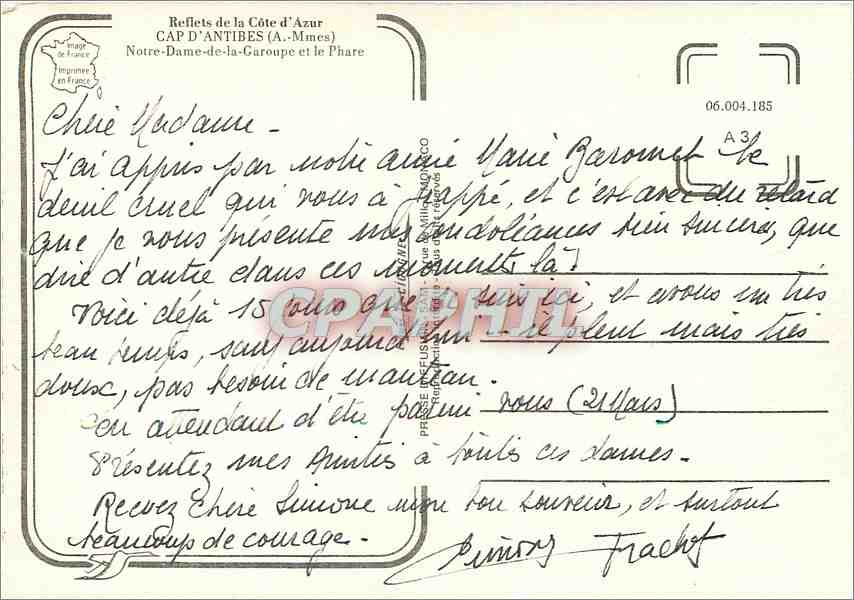 Reflets de la Côte d'Azur
CAP D'ANTIBES (A.-Mmes)
Notre-Dame-de-la-Garoupe et le Phare
Image
de France
Imprimée
en France
06.004.185
A 3
Chère Madame -
J'ai appris par notre amie Marie Baromet le
deuil cruel qui vous a frappé, et c'est avec du retard
que je vous présente mes condoléances bien sincères, que
dire d'autre dans ces moments là!
Voici déjà 15 jours que je suis ici, et avons un très
beau temps, sauf aujourd'hui il pleut mais très
doux, pas besoin de manteau.
En attendant d'être parmi vous (21 Mars)
Présentez mes amitiés à toutes ces dames -
Recevez Chère Simone mon bon souvenir, et surtout
beaucoup de courage -
CPAPHIL